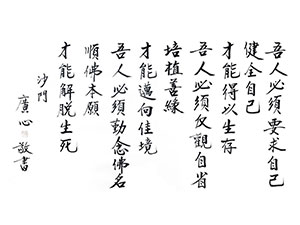 吾人必須要求自己
健全自己
才能得以生存
吾人必須反觀自省
培植善緣
才能邁向佳境
吾人必須勤念佛名
順佛本願
才能解脫生死
沙門
廣心
敬書